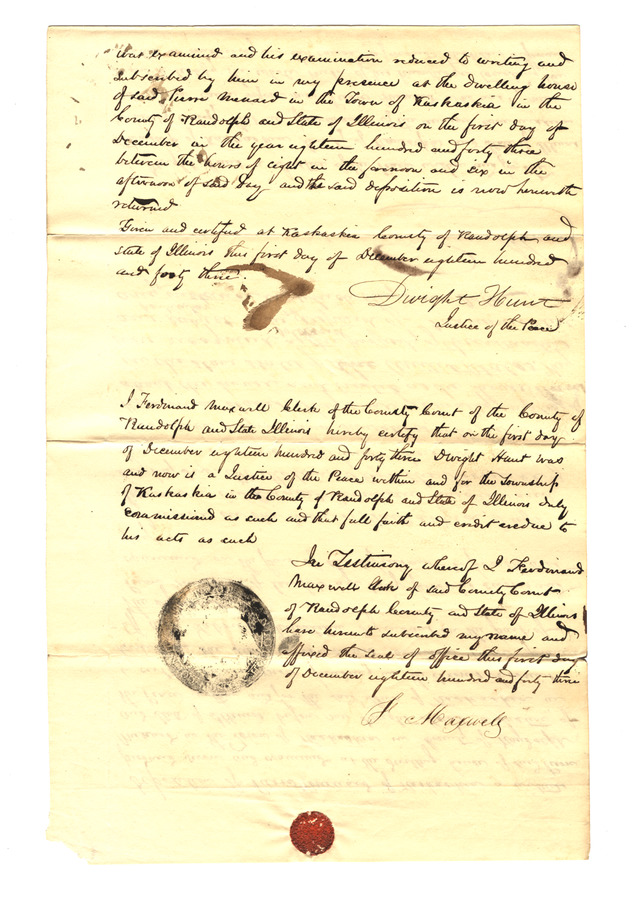 was examined and his examination reduced to writing and
subscribed by him in my presence at the dwelling house
of said Pierre Menard in the Town of Kaskaskia in the
County of Randolph and State of Illinois on the first day of
December in the year eighteen hundred and forty three
between the hours of eight in the forenoon and six in the
afternoon of said day and the said deposition is now herewith
returned
Given and certified at Kaskaskia County of Randolph and
state of Illinois this first day of December eighteen hundred
and forty three.
Dwight Hunt
Justice of the Peace
I Ferdinand Maxwell Clerk of the County Court of the County of
Randolph and State Illinois hereby certify that on the first day
of December eighteen hundred and forty three Dwight Hunt was
and now is a Justice of the Peace within and for the Township
of Kaskaskia in the County of Randolph and State of Illinois duly
commissiond as such and that full faith and credit are due to
his acts as such
In Testimony whereof I Ferdinand
Maxwell Clerk of said County Court
of Randolph County and State of Illinois
have hereunto subscribed my name and
affixed the seal of office this first day
of December eighteen hundred and forty three
F Maxwell